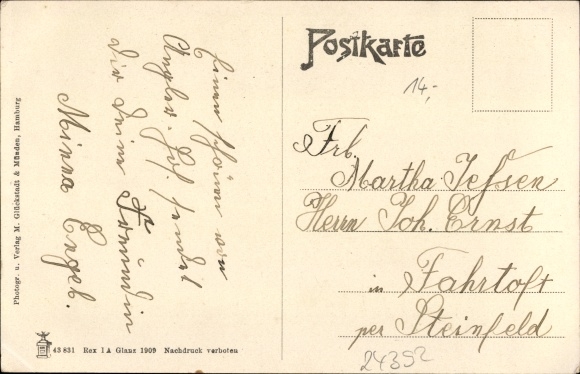 Postkarte
14,-
Frl.
Martha Jessen
Herrn Joh. Ernst
in Fahrtoft
per Steinfeld
24352
Einen schönen von
Angler. sendet
Dir Deine Freundin
Minna Engeb.
Photogr. u. Verlag M. Glückstadt & Münden, Hamburg
43 831 Rex 1 A Glanz 1909 Nachdruck verboten